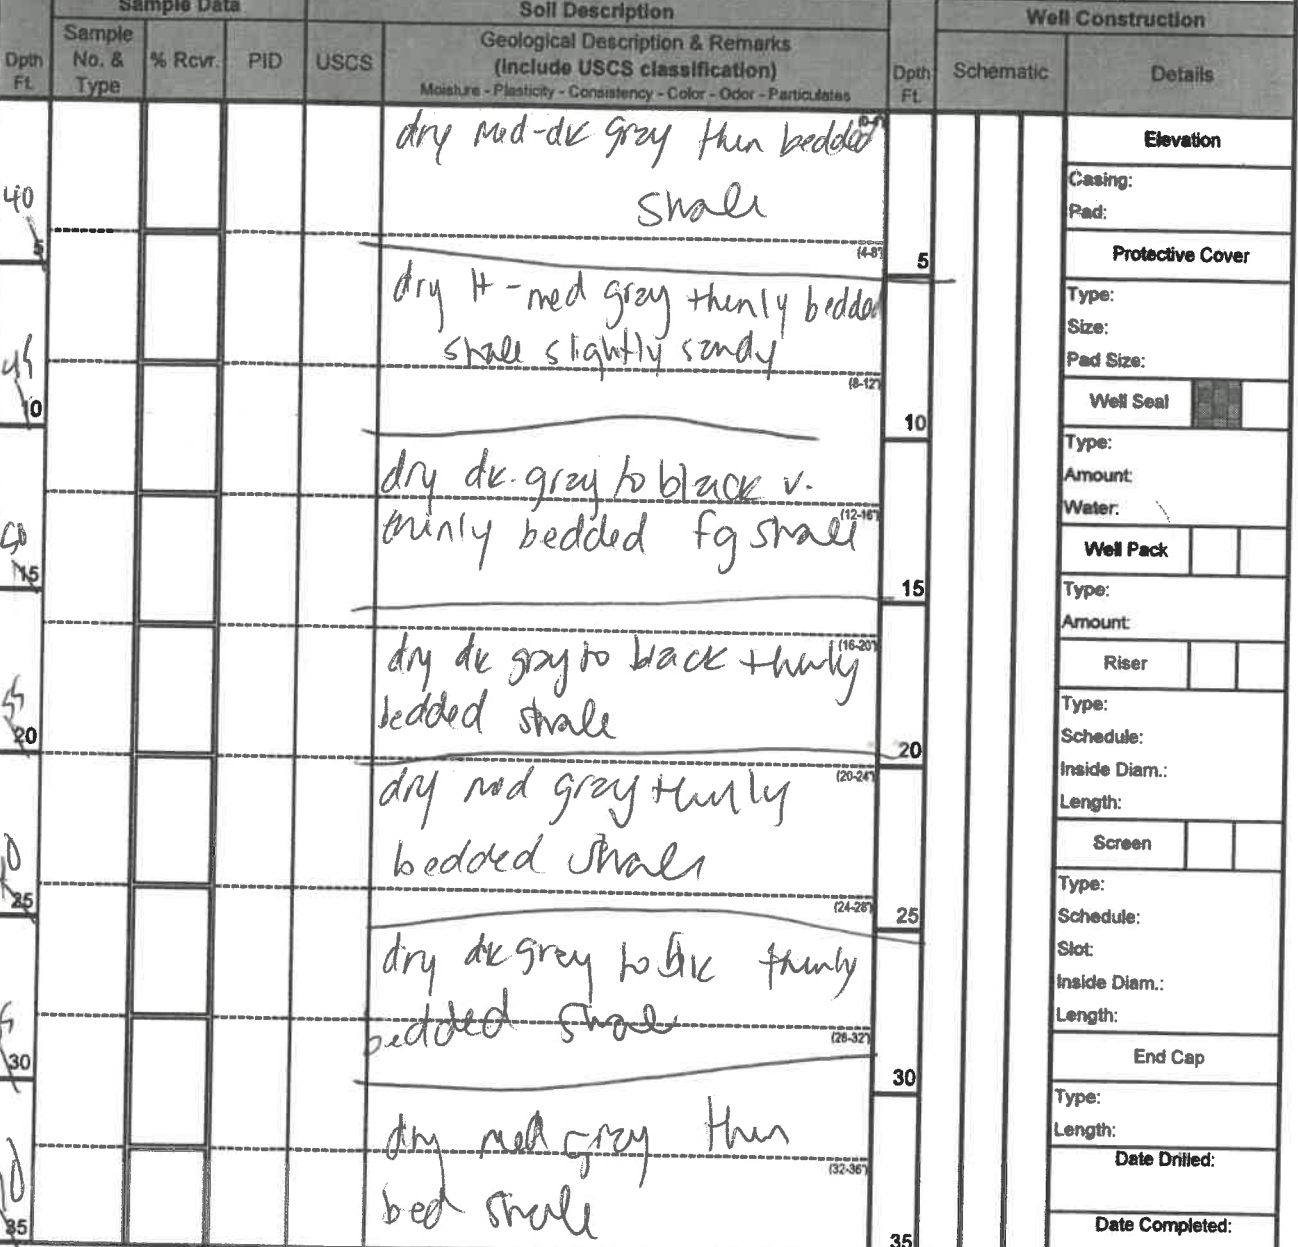 Sample Data
Soil Description
Well Construction
Dpth Ft.
Sample No. & Type
% Rcvr.
PID
USCS
Geological Description & Remarks
(Include USCS classification)
Moisture - Plasticity - Consistency - Color - Odor - Particulates
Dpth Ft.
Schematic
Details
dry med-dk gray thin bedded
shale
40
5
(4-8')
5
dry lt-med gray thinly bedded
shale slightly sandy
(8-12')
45
10
10
dry dk. gray to black v.
(12-16')
thinly bedded fg shale
50
15
15
(16-20')
dry dk gray to black thinly
bedded shale
55
20
20
(20-24')
dry med gray thinly
bedded shale
25
(24-28')
25
dry dk grey to blk thinly
bedded shale
(28-32')
30
30
dry med gray thin
(32-36')
bed shale
35
35
Elevation
Casing:
Pad:
Protective Cover
Type:
Size:
Pad Size:
Well Seal
Type:
Amount:
Water:
Well Pack
Type:
Amount:
Riser
Type:
Schedule:
Inside Diam.:
Length:
Screen
Type:
Schedule:
Slot:
Inside Diam.:
Length:
End Cap
Type:
Length:
Date Drilled:
Date Completed: